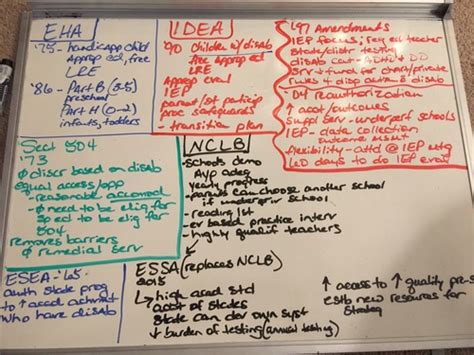 EHA
'75 - handicapp child
approp ed, free
LRE
'86 - Part B (3-5)
preschool
Part H (0-2)
infants, toddlers
IDEA
'90 Children w/disab
Approp ed, free
LRE
Approp eval
IEP
parent/st particip
proc safeguards
- transition plan
'97 Amendments
IEP focus; reg ed teacher
state/distr testing
disab cat - ADHD & DD
Serv & fund for chart/private
rules 4 disp action ē disab
'04 Reauthorization
↑ acct/outcomes
suppl serv - underperf schools
IEP - data collection
outcome msmt
flexibility - attd @ IEP mtg
60 days to do IEP eval
Sect 504
'73
∅ discr based on disab
equal access/opp
reasonable accomod
∅ need to be elig for
sp ed to be elig for
504.
removes barriers
∅ remedial serv
NCLB
- schools demo
AYP adeq
yearly progress
- parents can choose another school
if underprf school
- reading 1st
- ev based practice interv
- highly qualif teachers
ESEA - '65
auth state prog
to ↑ acad achmt
who have disab
ESSA (replaces NCLB)
2015
↳ high acad std
acct of states
state can dev own syst
↓ burden of testing (annual testing)
↑ access to ↑ quality pre-s
estb new resources for